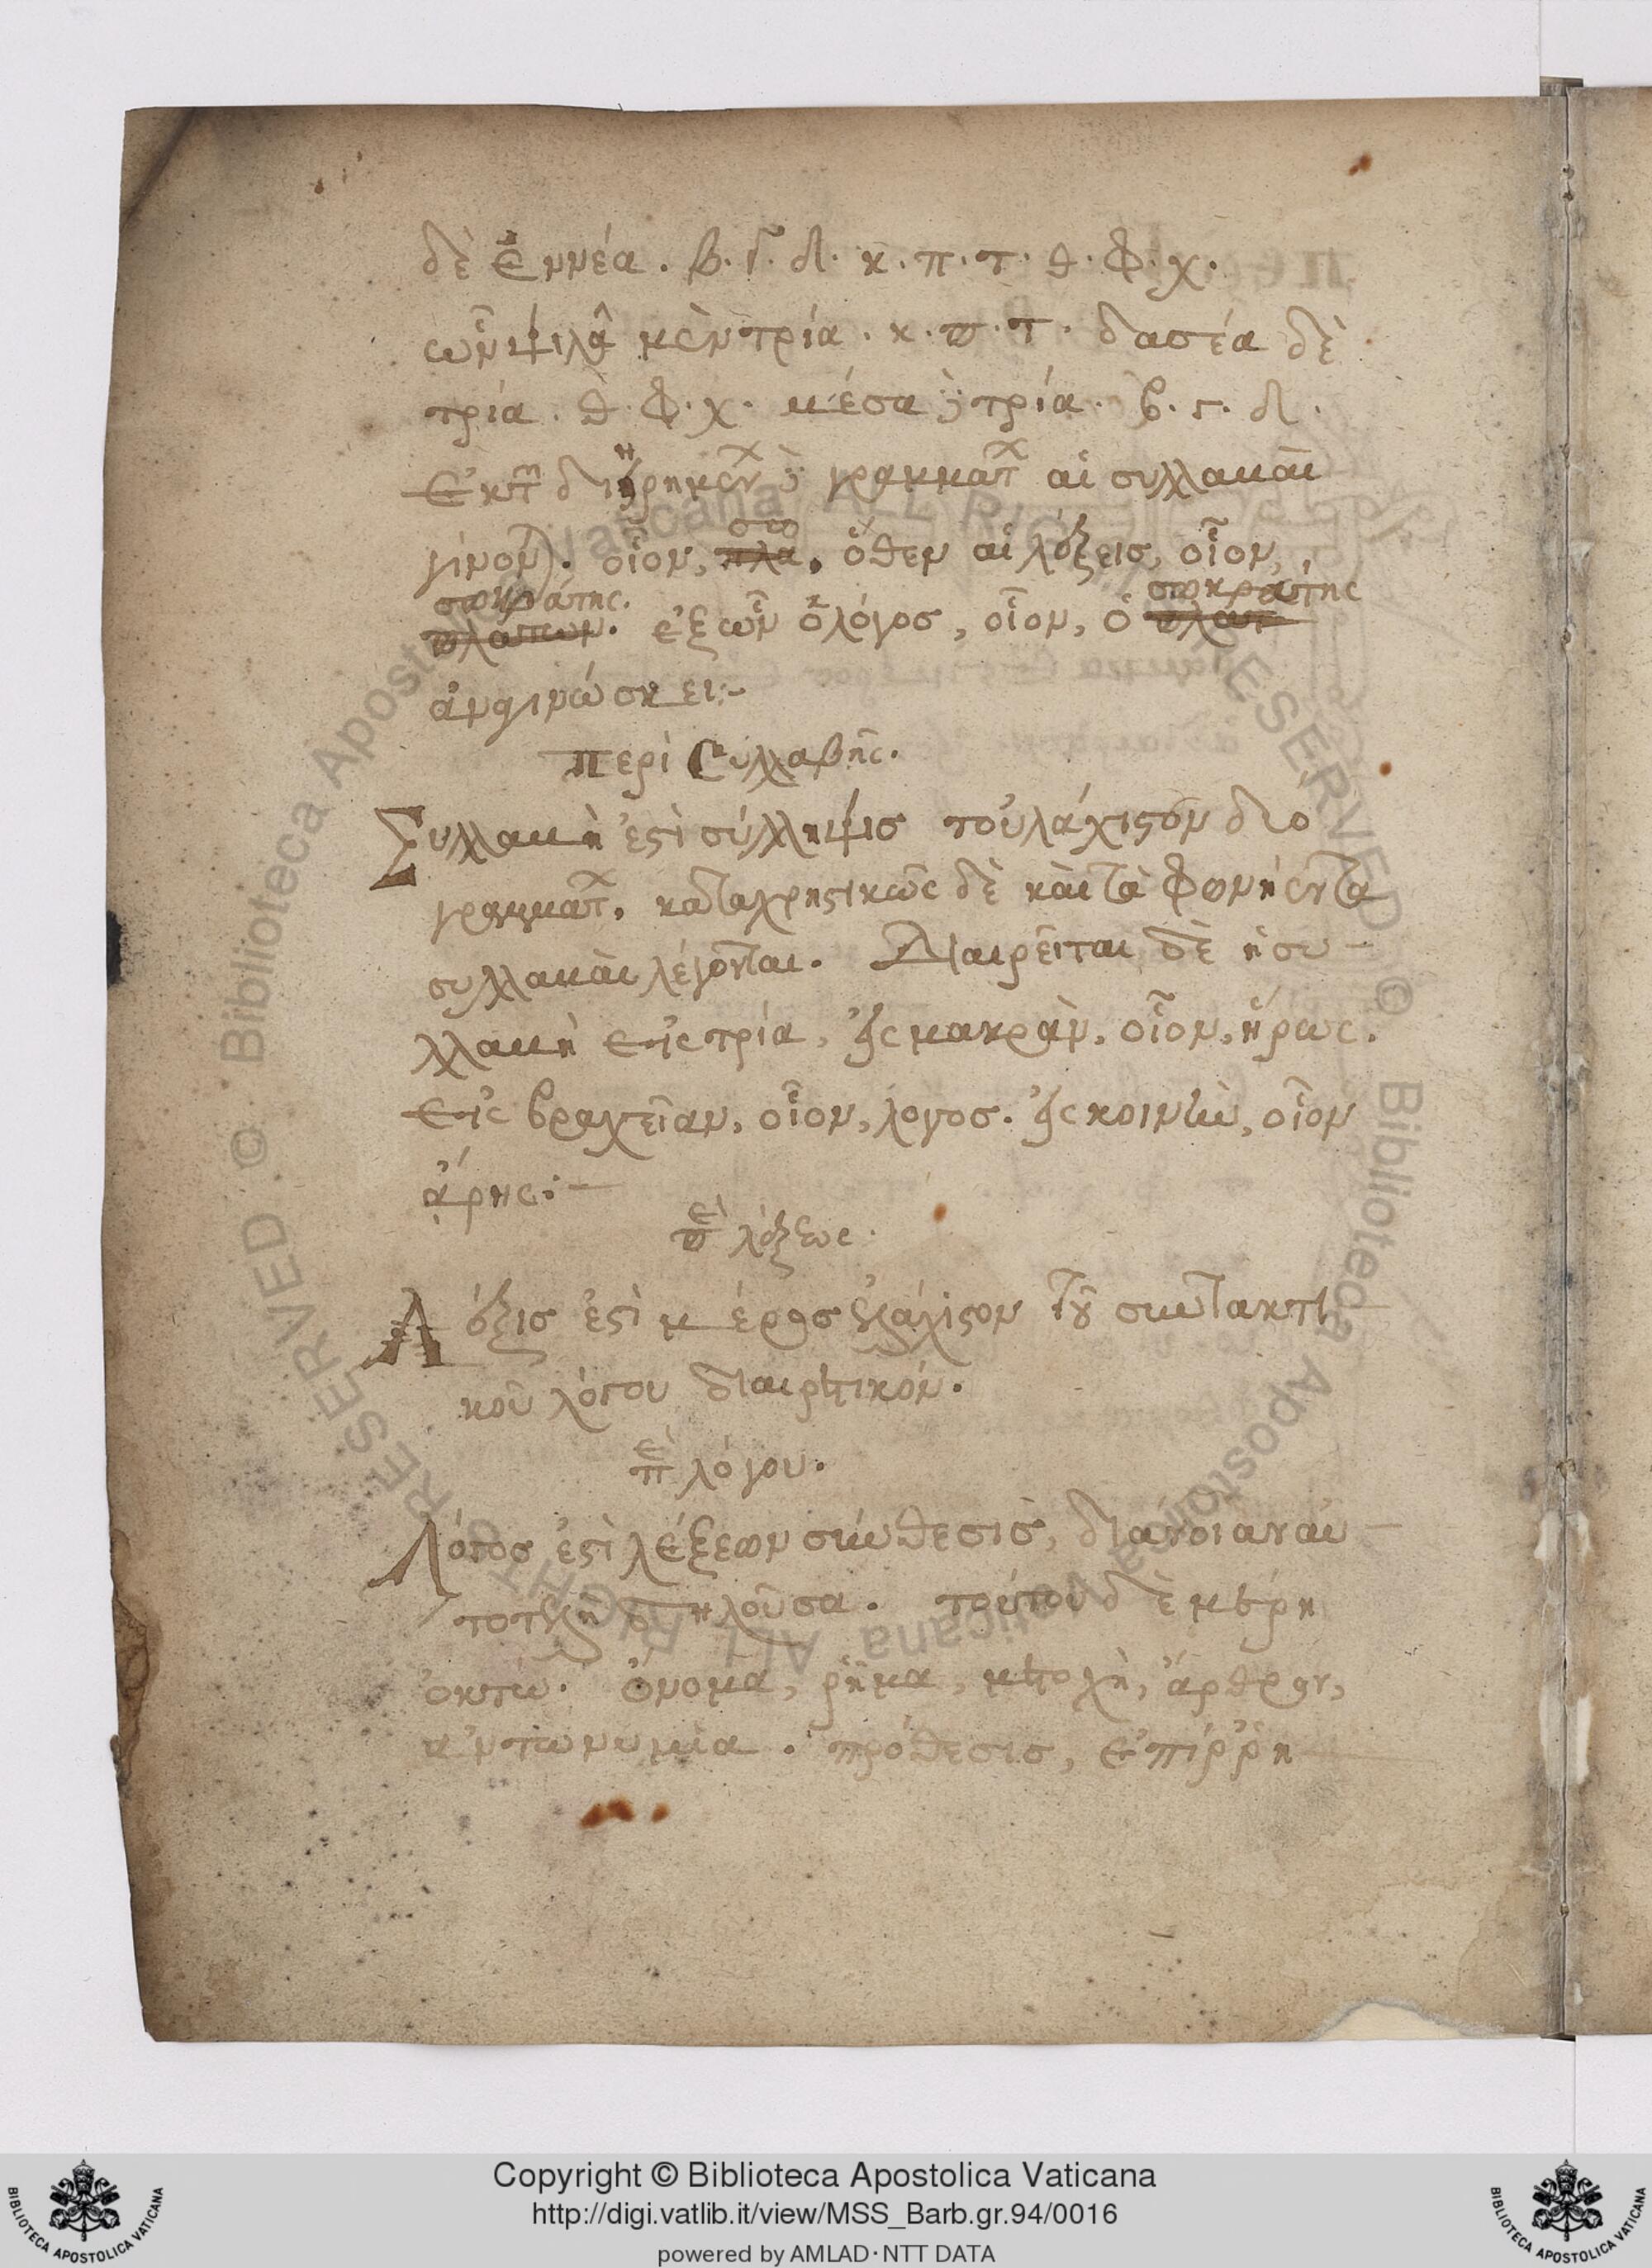 δὲ ἐννέα. β. γ. δ. κ. π. τ. θ. φ. χ.
ὧν ψιλὰ μὲν τρία. κ. π. τ. δασέα δὲ
τρία. θ. φ. χ. μέσα τρία. β. γ. δ.
γραμμάτ αἱ συλλαβαὶ
οἷον, σω πλα. ὅθεν αἱ λέξεις, οἷον,
σωκράτης. πλατων. ἐξ ὧν ὁ λόγος, οἷον, ὁ σωκράτης
ἀναγινώσκει:-
Περὶ Συλλαβῆς.
Συλλαβὴ ἐστὶ σύλληψις τοὐλάχιστον δύο
γραμμάτ, καταχρηστικῶς δὲ καὶ τὰ φωνήεντα
συλλαβαὶ λέγονται. Διαιρεῖται δὲ ἡ συ-
λλαβὴ εἰς τρία, εἰς μακρὰν, οἷον, ἥρως.
εἰς βραχεῖαν, οἷον, λόγος. εἰς κοινὴν, οἷον
ἄρης:-
πε λέξεως.
Λέξις ἐστὶ μέρος ἐλάχιστον τοῦ συντακτι
κοῦ λόγου διαιρετικόν.
πε λόγου.
Λόγος ἐστὶ λέξεων σύνθεσις, διάνοιαν αὐ-
τοτελῆ δηλοῦσα. τούτου δὲ μέρη
ὀκτώ. ὄνομα, ῥῆμα, μετοχὴ, ἄρθρον,
ἀντωνυμία. πρόθεσις, ἐπίῤῥη
Copyright © Biblioteca Apostolica Vaticana
http://digi.vatlib.it/view/MSS_Barb.gr.94/0016
powered by AMLAD·NTT DATA
BIBLIOTECA APOSTOLICA VATICANA
BIBLIOTECA APOSTOLICA VATICANA
© Biblioteca Apostolica Vaticana ALL RIGHT RESERVED
© Biblioteca Apostolica Vaticana ALL RIGHT RESERVED